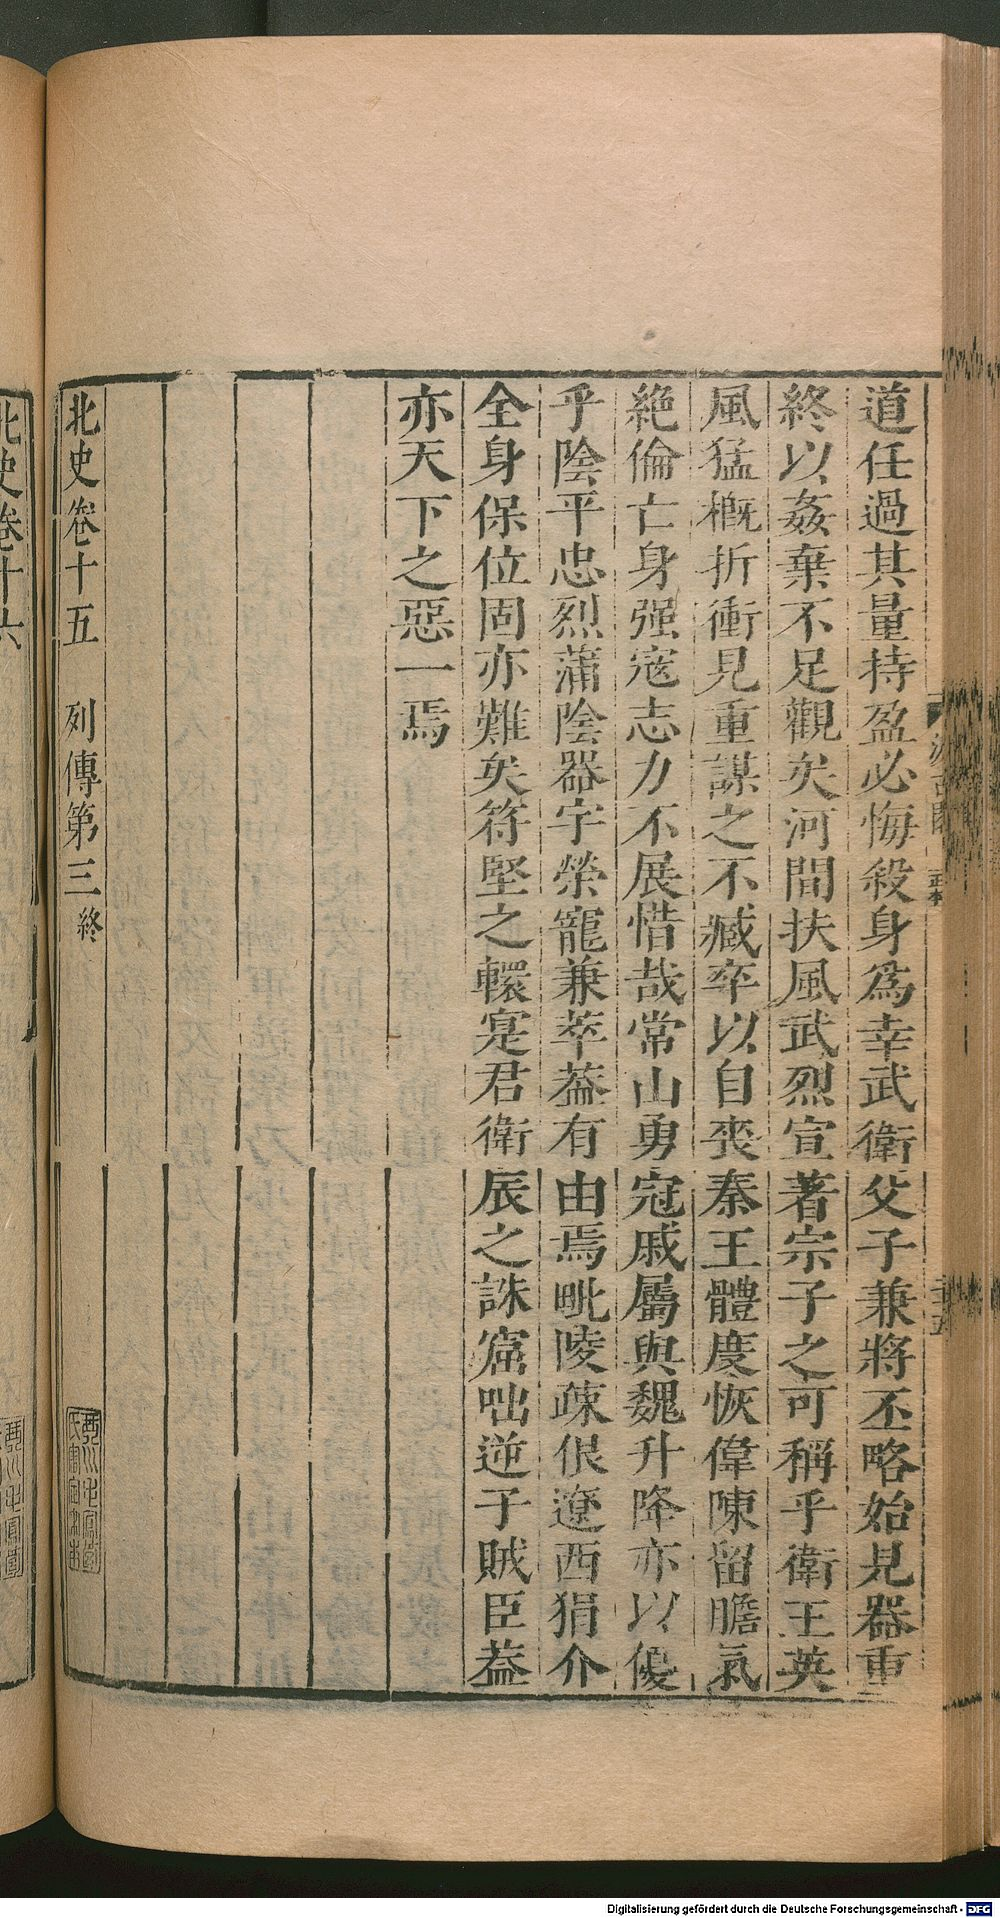 道任過其量持盈必悔殺身爲幸武衛父子兼將丕略始見器重
終以姦棄不足觀矣河間扶風武烈宣著宗子之可稱乎衛王英
風猛概折衝見重謀之不臧卒以自喪秦王體度恢偉陳留膽氣
絶倫亡身强寇志力不展惜哉常山勇冠戚屬與魏升降亦以優
乎陰平忠烈蒲陰器宇榮寵兼萃葢有由焉毗陵疎佷遼西狷介
全身保位固亦難矣符堅之轘寔君衛辰之誅窟咄逆子賊臣葢
亦天下之惡一焉
北史卷十五 列傳第三終
北史卷十六
Digitalisierung gefördert durch die Deutsche Forschungsgemeinschaft - DFG